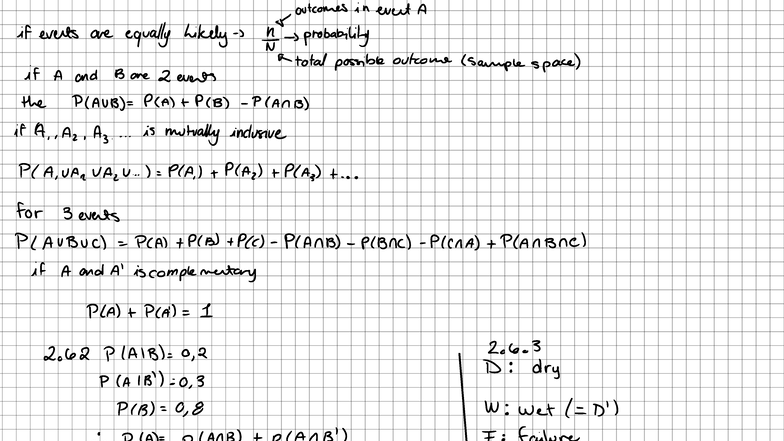 outcomes in event A
if events are equally likely → n/N → probability
total possible outcome (sample space)
if A and B are 2 events
the P(A∪B) = P(A) + P(B) - P(A∩B)
if A₁, A₂, A₃ ... is mutually inclusive
P(A₁∪A₂∪A₂∪..) = P(A₁) + P(A₂) + P(A₃) + ...
for 3 events
P(A∪B∪C) = P(A) + P(B) + P(C) - P(A∩B) - P(B∩C) - P(C∩A) + P(A∩B∩C)
if A and A' is complementary
P(A) + P(A') = 1
2.62 P(A|B) = 0,2
P(A|B') = 0,3
P(B) = 0,8
: P(A) = P(A∩B) + P(A∩B')
2.6.3
D: dry
W: wet (= D')
F: failure